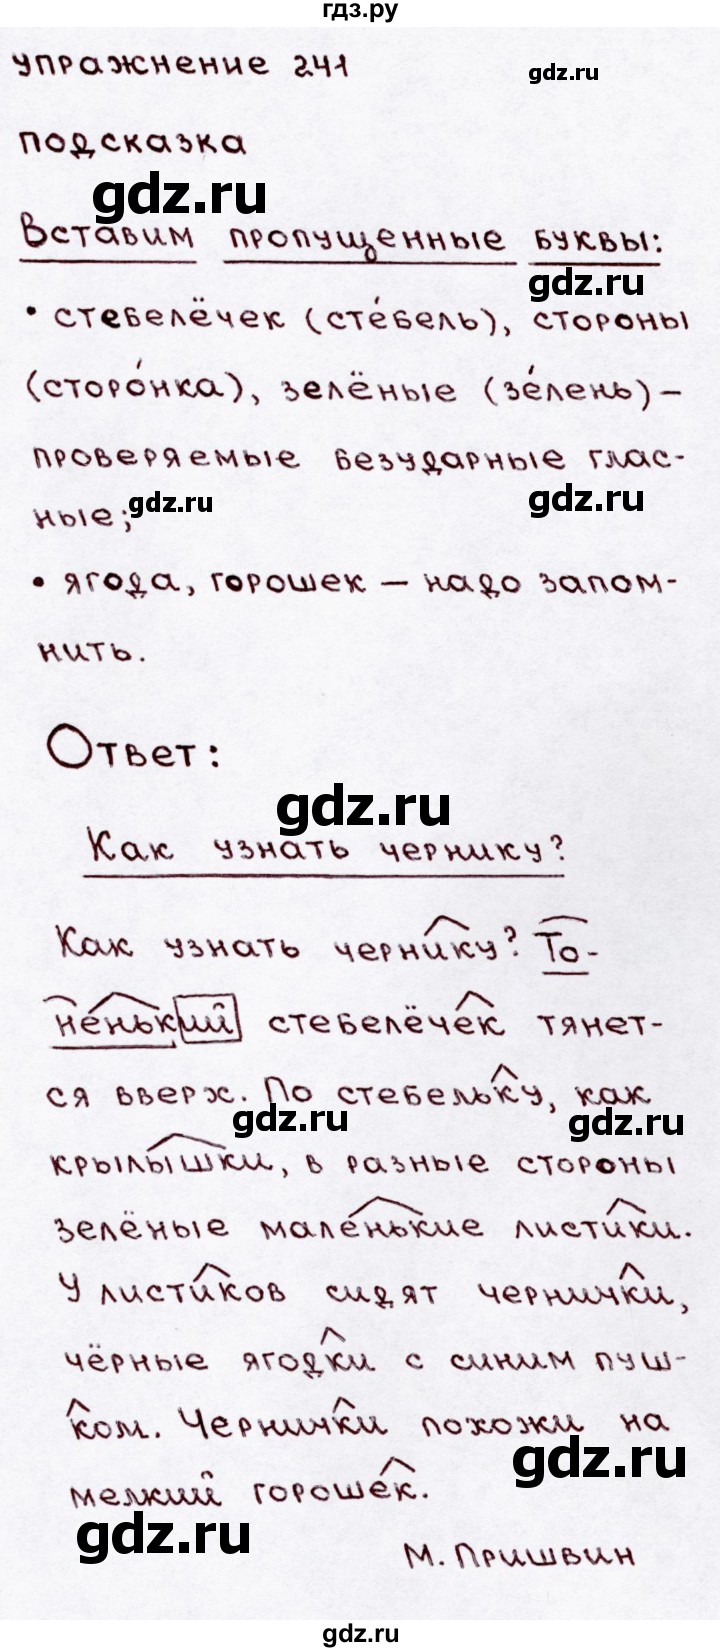 гдз.ру
упражнение 241
gdz.ru
подсказка
gdz.ru
Вставим пропущенные буквы:
gdz.ru
• стебелёчек (сте́бель), стороны
(сторо́нка), зелёные (зе́лень) –
проверяемые безударные глас-
gdz.ru
ные;
gdz.ru
• ягода, горошек – надо запом-
нить.
Ответ:
gdz.ru
Как узнать чернику?
Как узнать чернику? То-
ненький стебелёчек тянет-
ся вверх. По стебельку, как
gdz.ru
gdz.ru
крылышки, в разные стороны
зелёные маленькие листики.
У листиков сидят чернички,
чёрные ягодки с синим пуш-
ком. Чернички похожи на
gdz.ru
мелкий горошек.
gdz.ru
М. Пришвин
gdz.ru